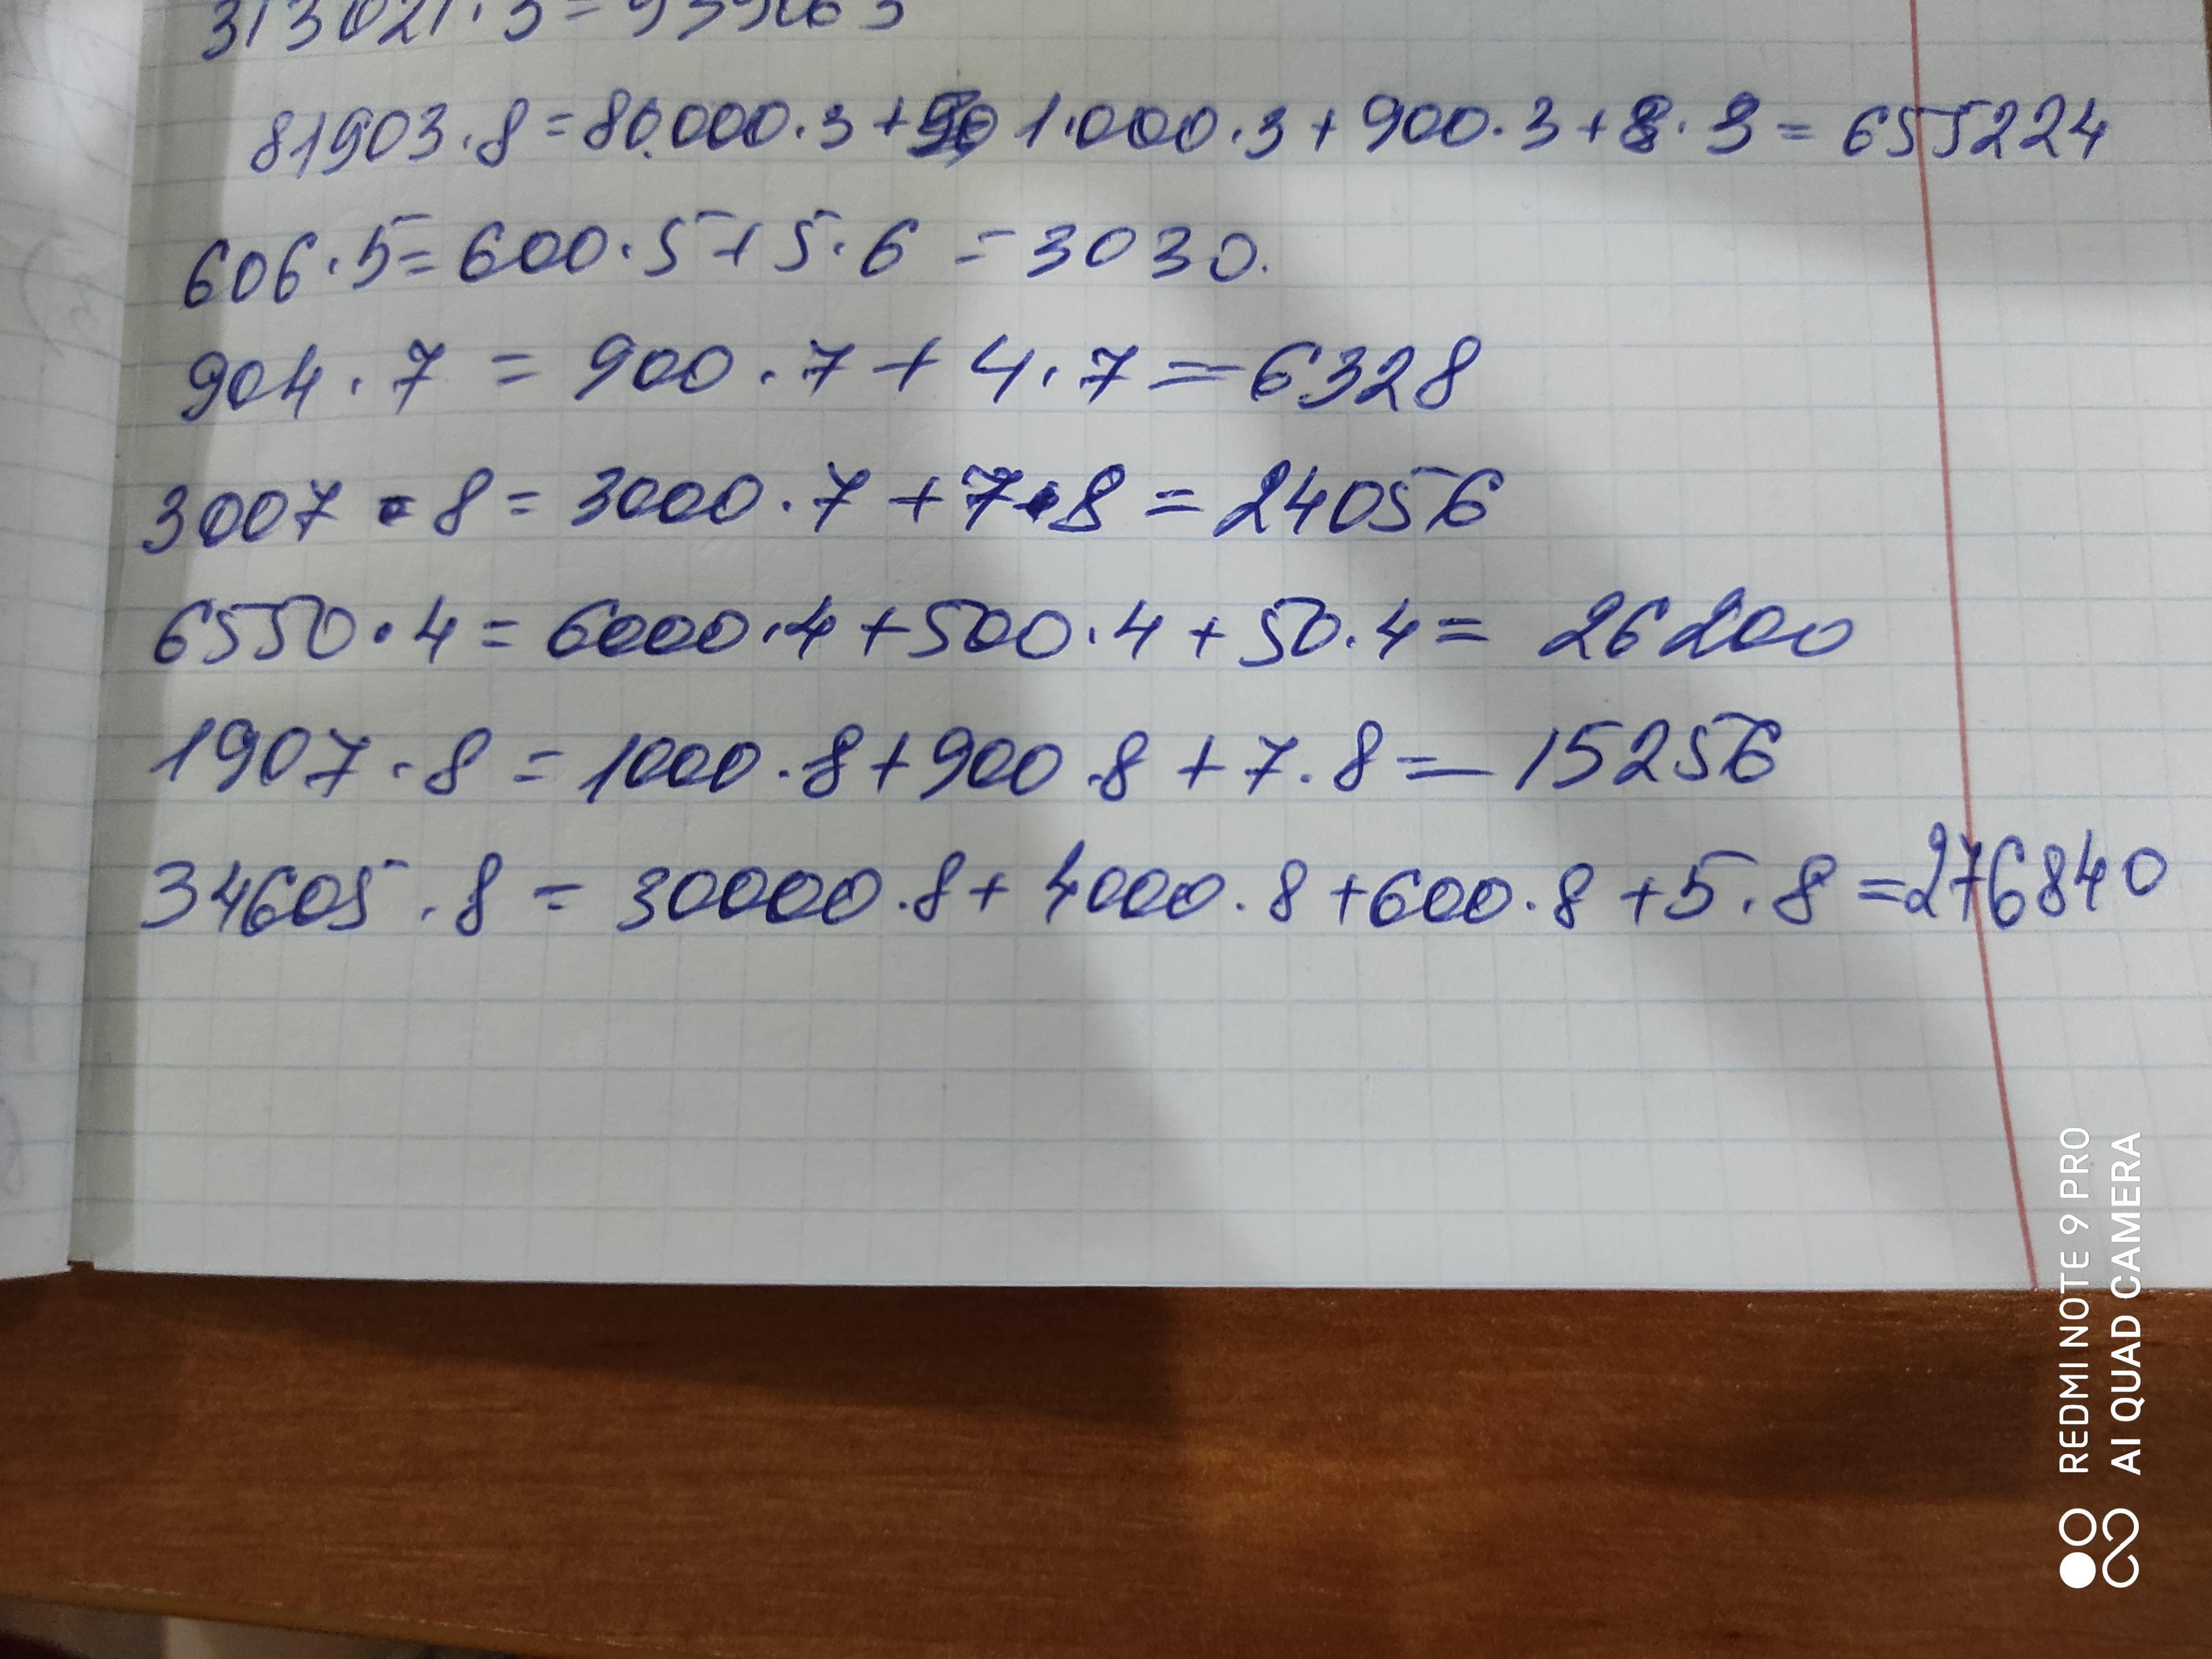 313021·3=939063
81903·8=80.000·3+ 1.000·3+900·3+8·3=655224
606·5=600·5+5·6=3030.
904·7=900·7+4·7=6328
3007·8=3000·7+7·8=24056
6550·4=6000·4+500·4+50·4=26200
1907·8=1000·8+900·8+7·8=15256
34605·8=30000·8+4000·8+600·8+5·8=276840
REDMI NOTE 9 PRO
AI QUAD CAMERA